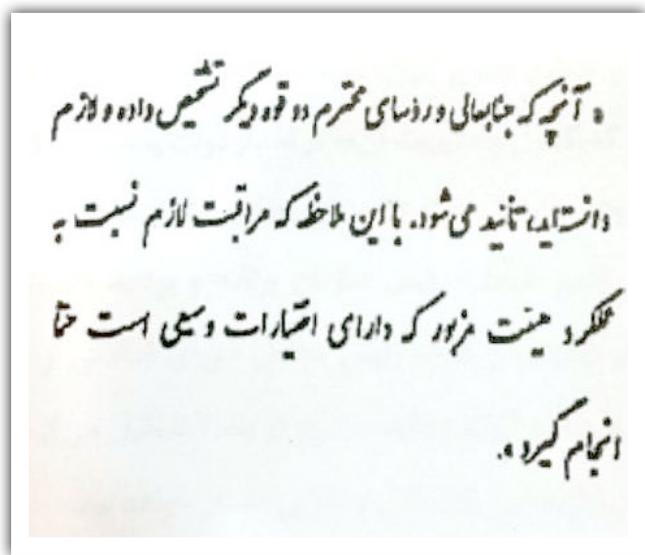 « آنچه که جنابعالی و رؤسای محترم دو قوه دیگر تشخیص داده و لازم
دانسته‌اید، تأئید می‌شود. با این ملاحظه که مراقبت لازم نسبت به
عملکرد هیئت مزبور که دارای اختیارات وسیعی است حتماً
انجام گیرد ».